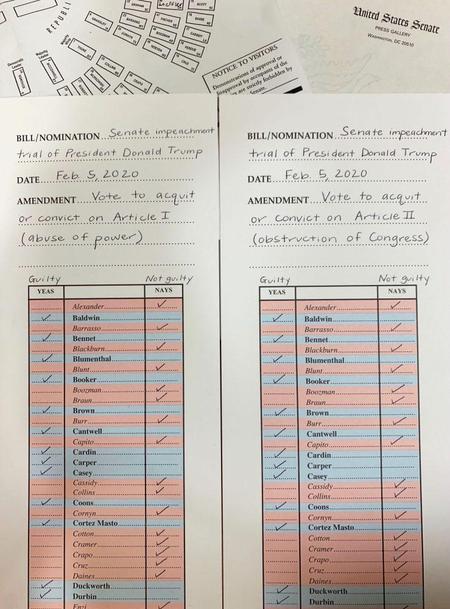 REPUBLI
NOTICE TO VISITORS
Demonstrations of approval or
isapproval by occupants of the
are strictly forbidden by
Senate.
United States Senate
PRESS GALLERY
WASHINGTON, DC 20510
BILL/NOMINATION Senate impeachment
trial of President Donald Trump
DATE Feb. 5, 2020
AMENDMENT Vote to acquit
or convict on Article I
(abuse of power)
Guilty Not guilty
YEAS NAYS
Alexander
Baldwin
Barrasso
Bennet
Blackburn
Blumenthal
Blunt
Booker
Boozman
Braun
Brown
Burr
Cantwell
Capito
Cardin
Carper
Casey
Cassidy
Collins
Coons
Cornyn
Cortez Masto
Cotton
Cramer
Crapo
Cruz
Daines
Duckworth
Durbin
Enzi
BILL/NOMINATION Senate impeachment
trial of President Donald Trump
DATE Feb. 5, 2020
AMENDMENT Vote to acquit
or convict on Article II
(obstruction of Congress)
Guilty Not guilty
YEAS NAYS
Alexander
Baldwin
Barrasso
Bennet
Blackburn
Blumenthal
Blunt
Booker
Boozman
Braun
Brown
Burr
Cantwell
Capito
Cardin
Carper
Casey
Cassidy
Collins
Coons
Cornyn
Cortez Masto
Cotton
Cramer
Crapo
Cruz
Daines
Duckworth
Durbin